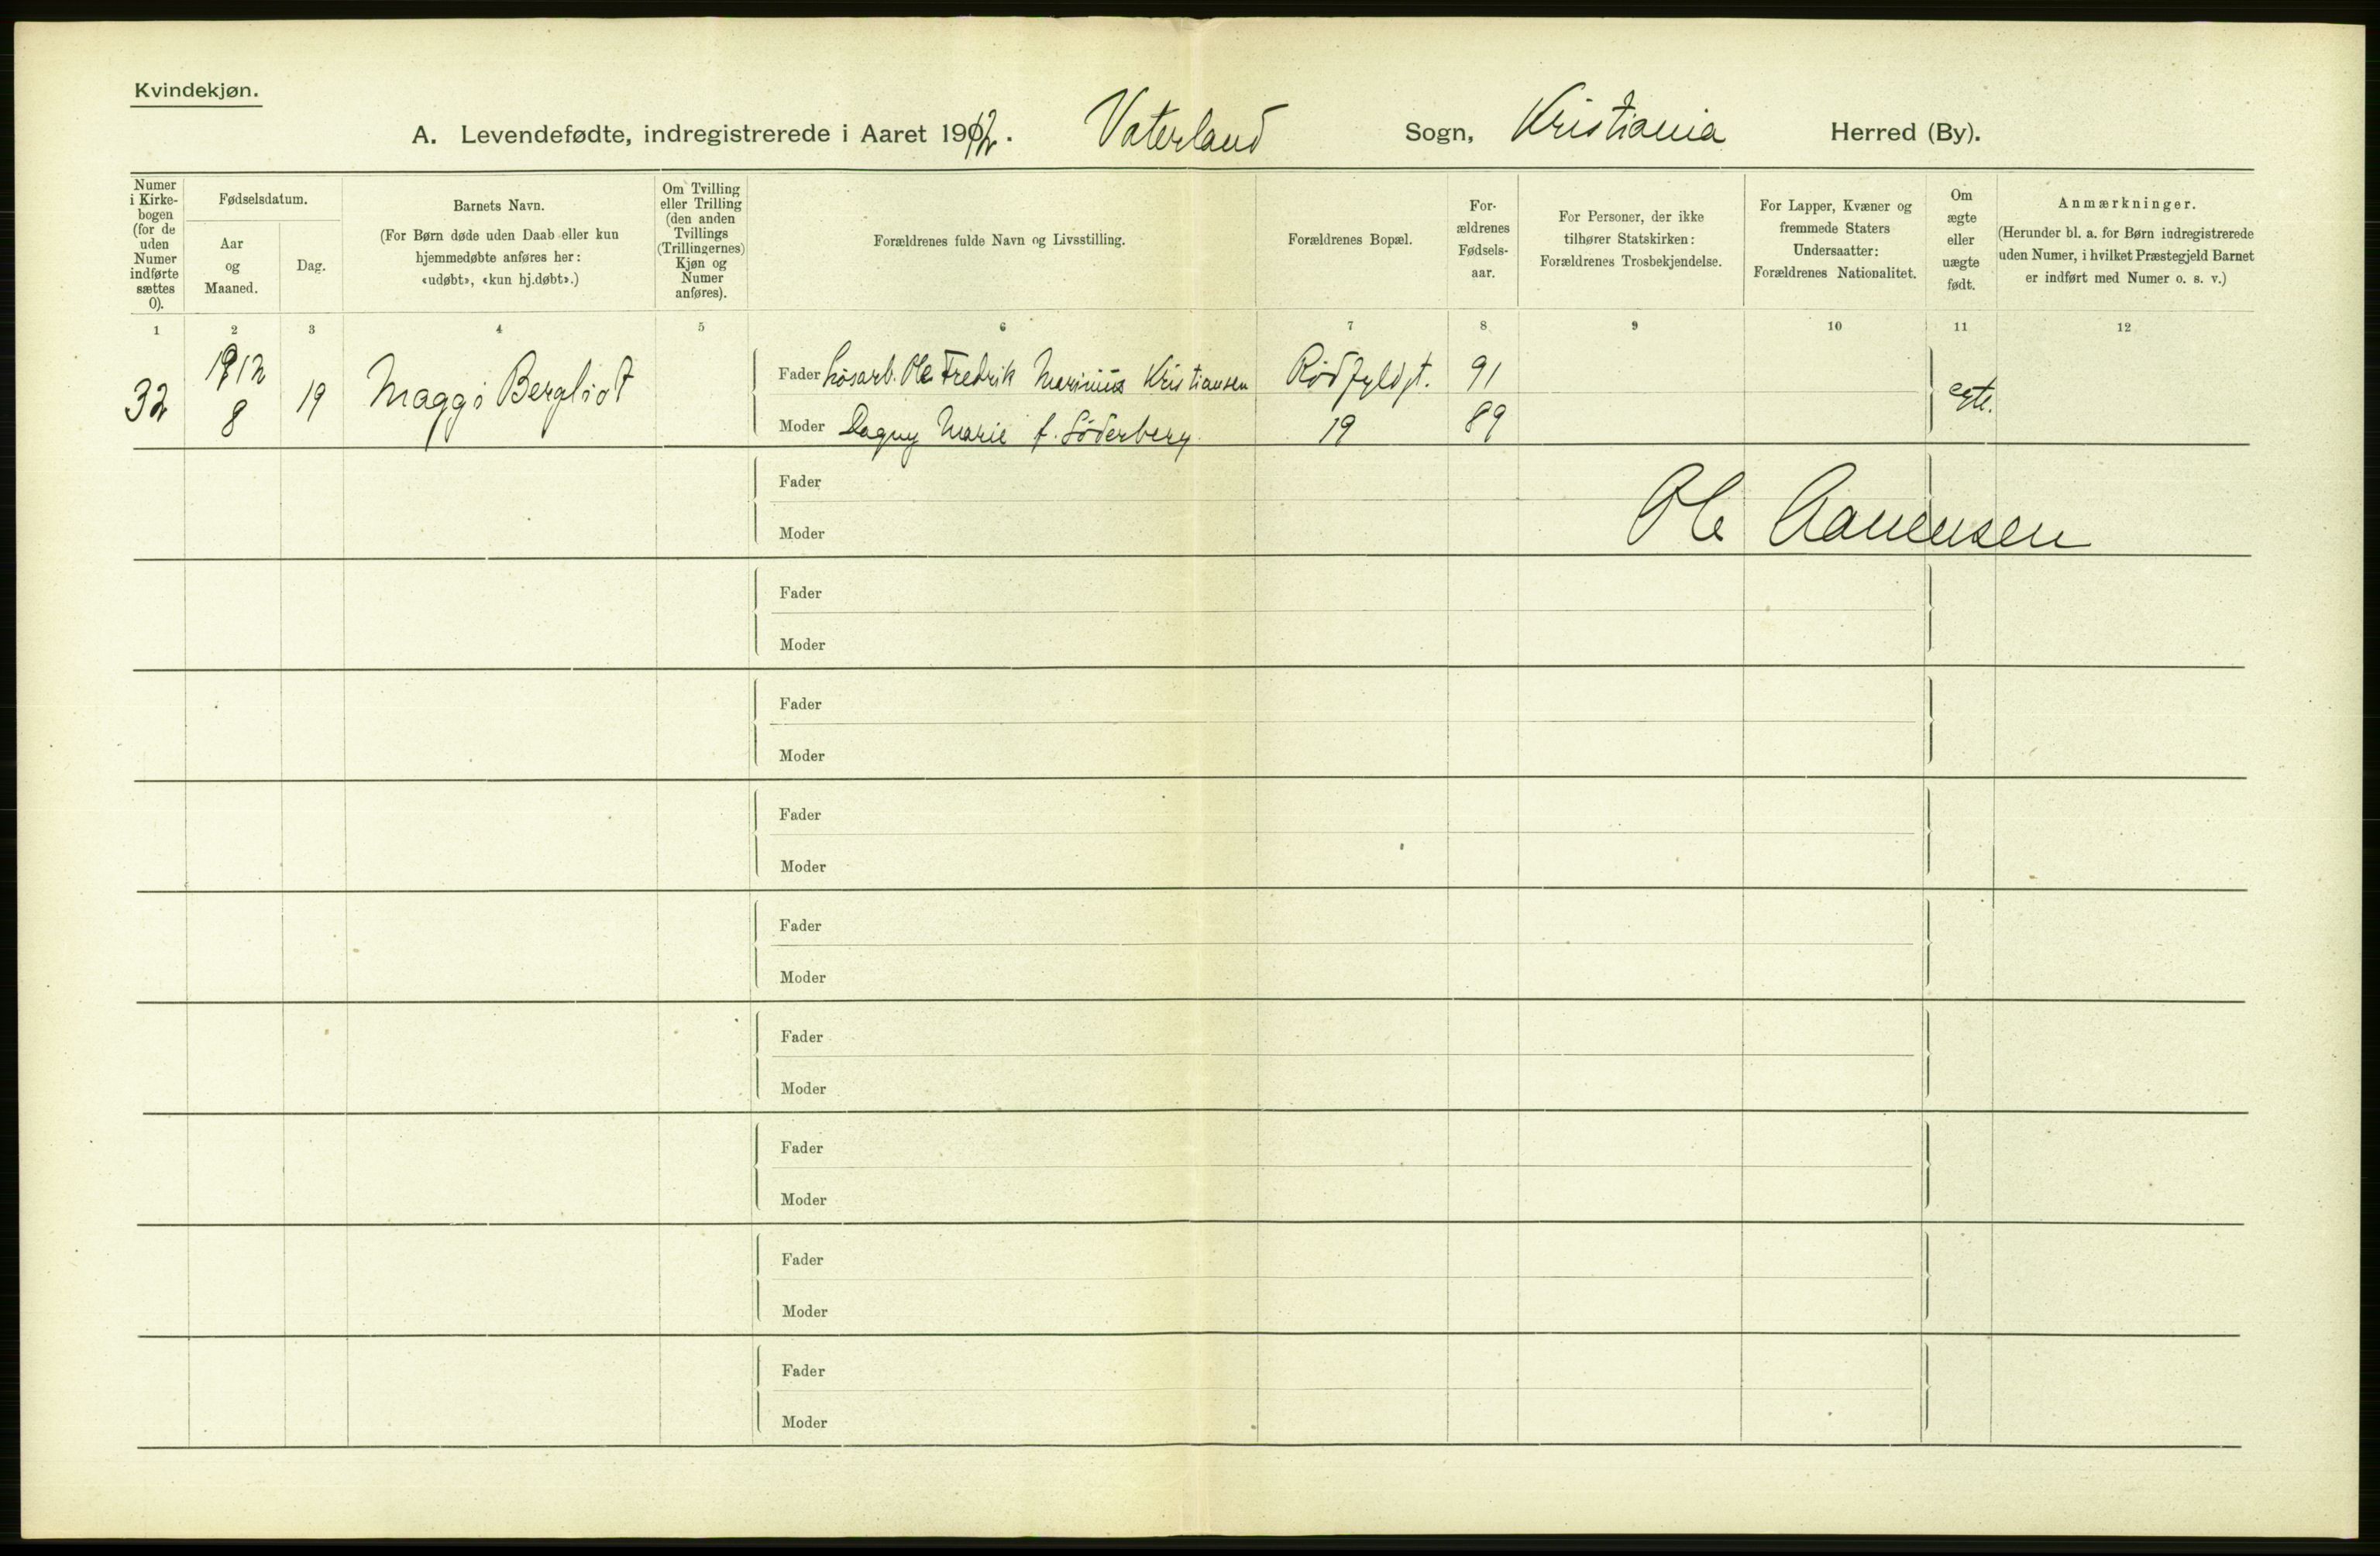 Kvindekjøn.
A. Levendefødte, indregistrerede i Aaret 1912. Vaterland Sogn, Kristiania Herred (By).
Numer
i Kirke-
bogen
(for de
uden
Numer
indførte
sættes
0).
Fødselsdatum.
Aar
og
Maaned.
Dag.
Barnets Navn.
(For Børn døde uden Daab eller kun
hjemmedøbte anføres her:
«udøbt», «kun hj.døbt».)
Om Tvilling
eller Trilling
(den anden
Tvillings
(Trillingernes)
Kjøn og
Numer
anføres).
Forældrenes fulde Navn og Livsstilling.
Forældrenes Bopæl.
For-
ældrenes
Fødsels-
aar.
For Personer, der ikke
tilhører Statskirken:
Forældrenes Trosbekjendelse.
For Lapper, Kvæner og
fremmede Staters
Undersaatter:
Forældrenes Nationalitet.
Om
ægte
eller
uægte
født.
Anmærkninger.
(Herunder bl. a. for Børn indregistrerede
uden Numer, i hvilket Præstegjeld Barnet
er indført med Numer o. s. v.)
1 2 3 4 5 6 7 8 9 10 11 12
32 1912 8 19 Maggi Bergliot
Fader Løsarb. Ole Fredrik Marinius Kristiansen Rødfyldgt. 91
Moder Dagny Marie f. Söderberg. 19 89
egte.
Fader
Moder
Ole
Fader
Moder
Fader
Moder
Fader
Moder
Fader
Moder
Fader
Moder
Fader
Moder
Fader
Moder
Fader
Moder